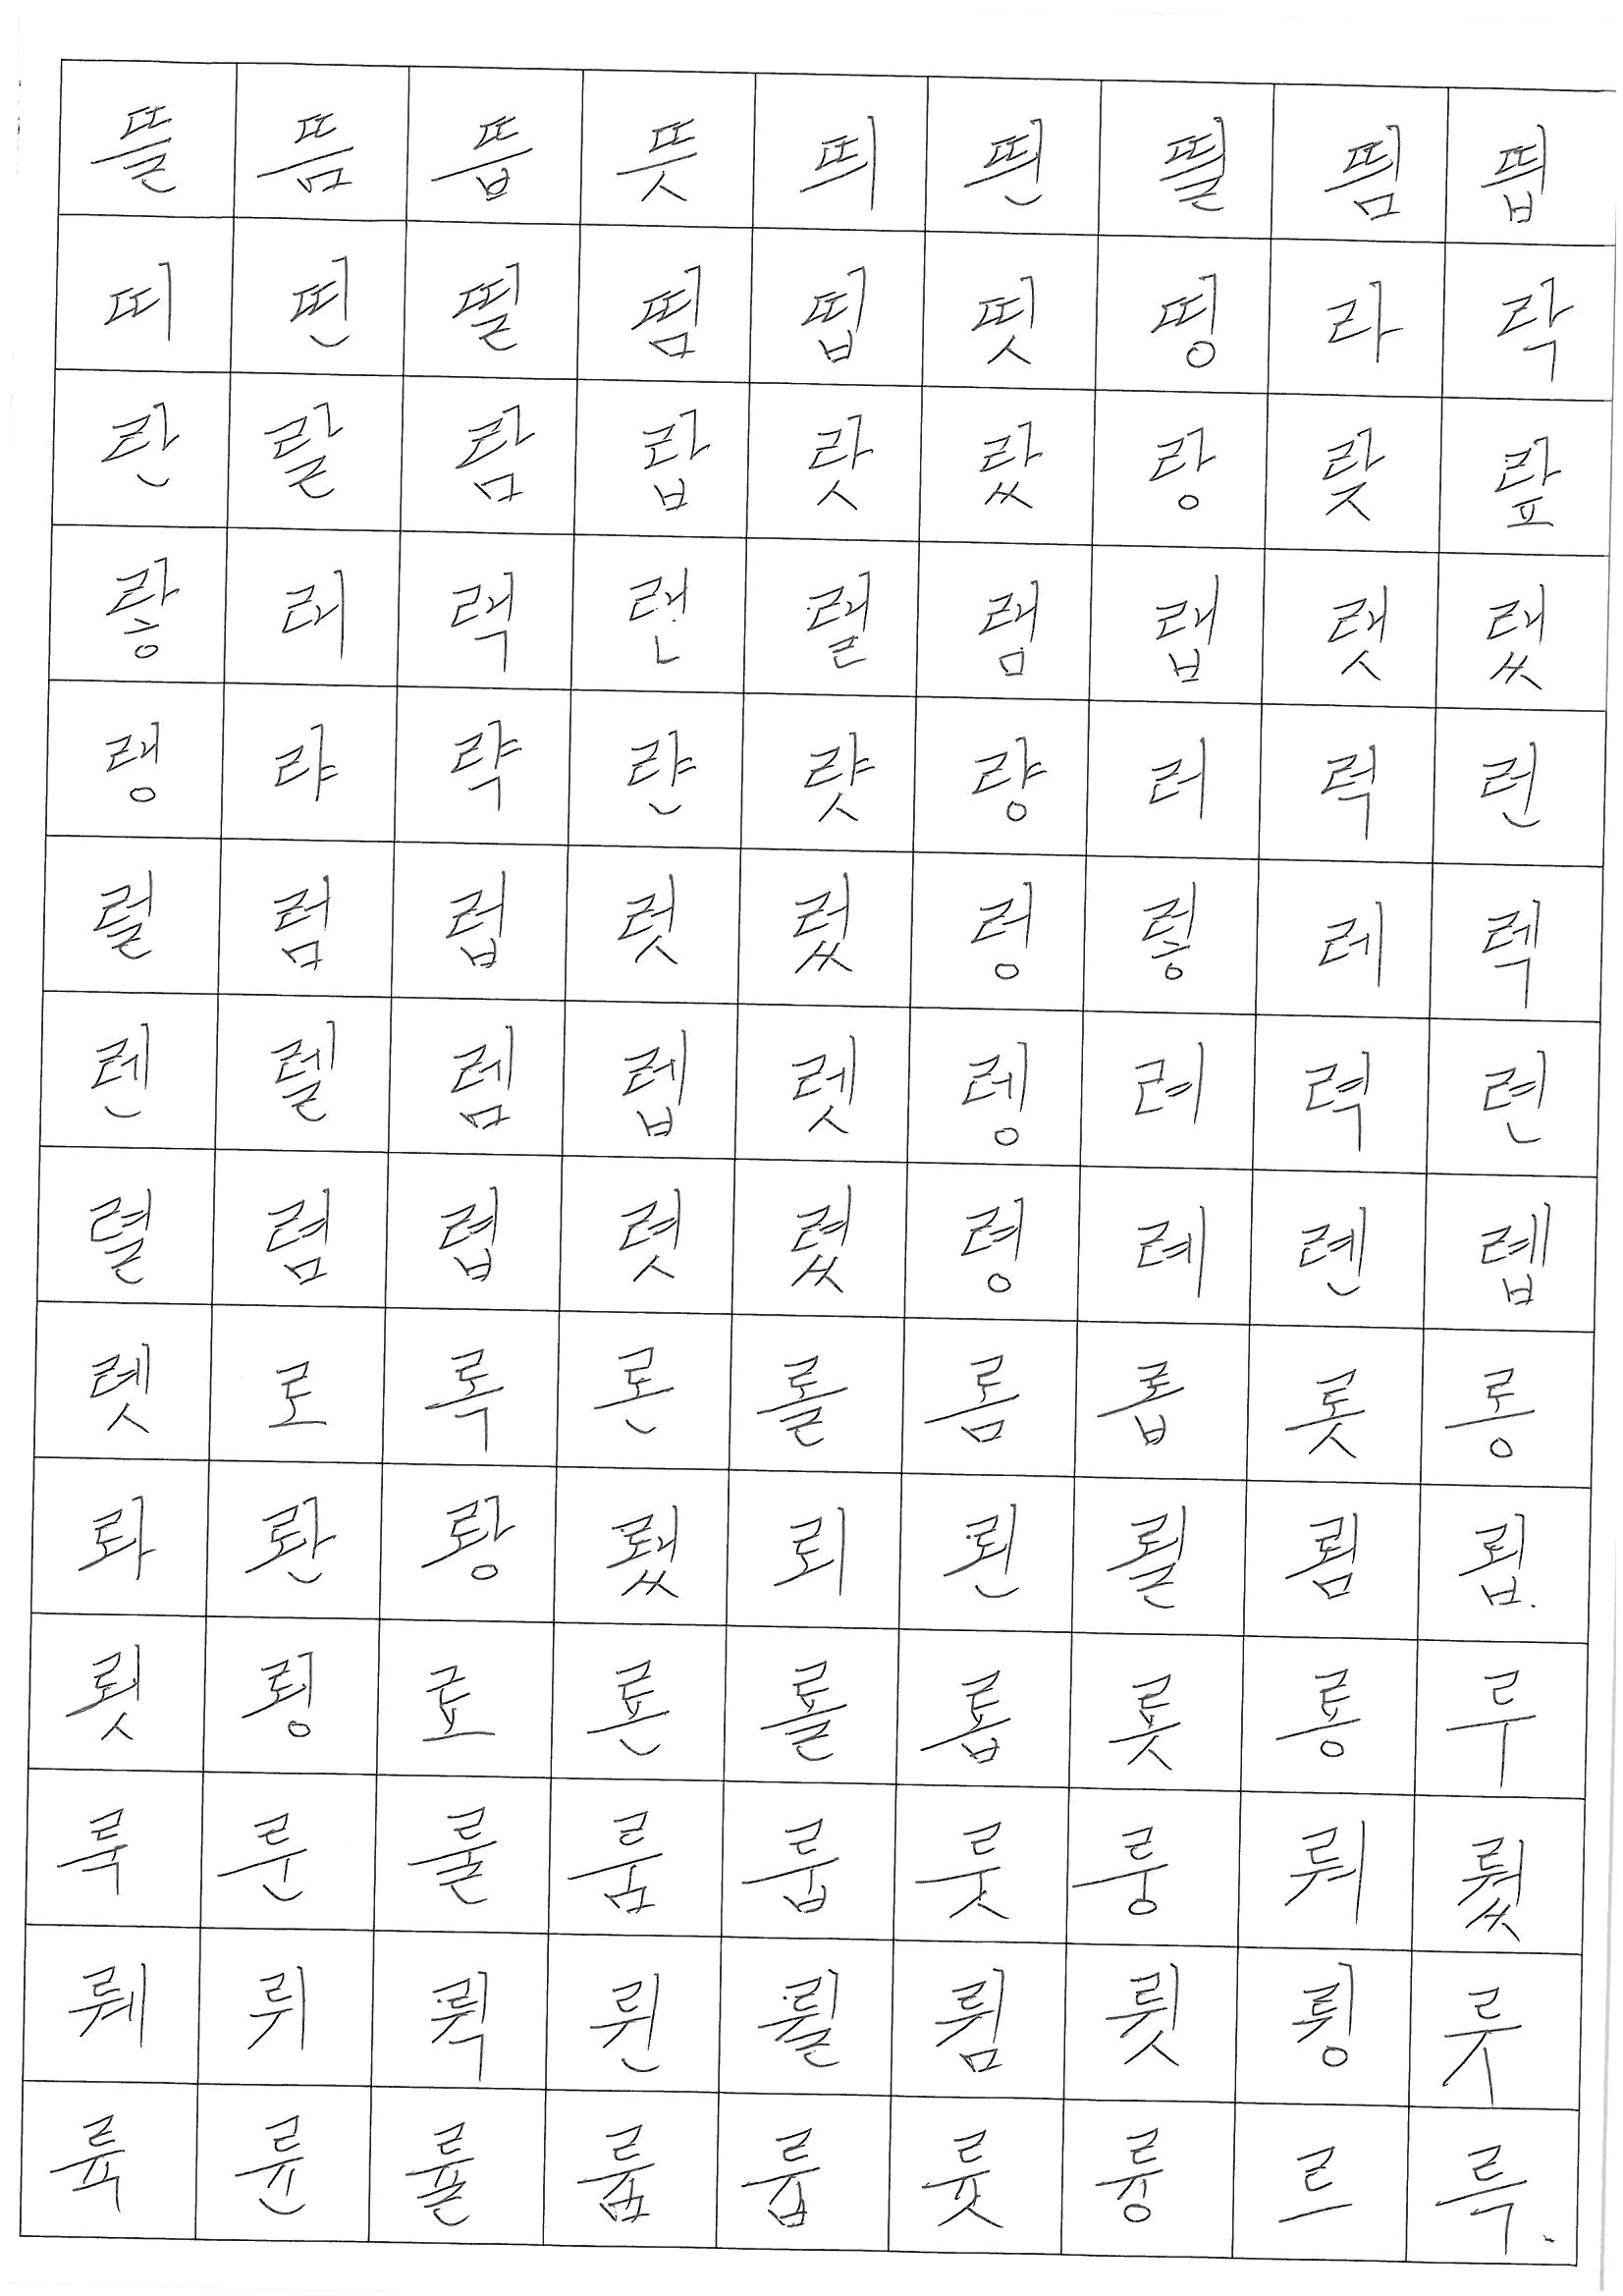 뜰 뜸 뜹 뜻 띄 띈 띌 띔 띕
띠 띤 띨 띰 띱 띳 띵 라 락
란 랄 람 랍 랏 랐 랑 랒 랖
랗 래 랙 랜 랠 램 랩 랫 랬
랭 랴 략 랸 럇 량 러 럭 런
럴 럼 럽 럿 렀 렁 렇 레 렉
렌 렐 렘 렙 렛 렝 려 력 련
렬 렴 렵 렷 렸 령 례 롄 롑
롓 로 록 론 롤 롬 롭 롯 롱
롸 롼 뢍 뢨 뢰 뢴 뢸 룀 룁
룃 룅 료 룐 룔 룝 룟 룡 루
룩 룬 룰 룸 룹 룻 룽 뤄 뤘
뤠 뤼 뤽 륀 륄 륌 륏 륑 류
륙 륜 률 륨 륩 륫 륭 르 륵